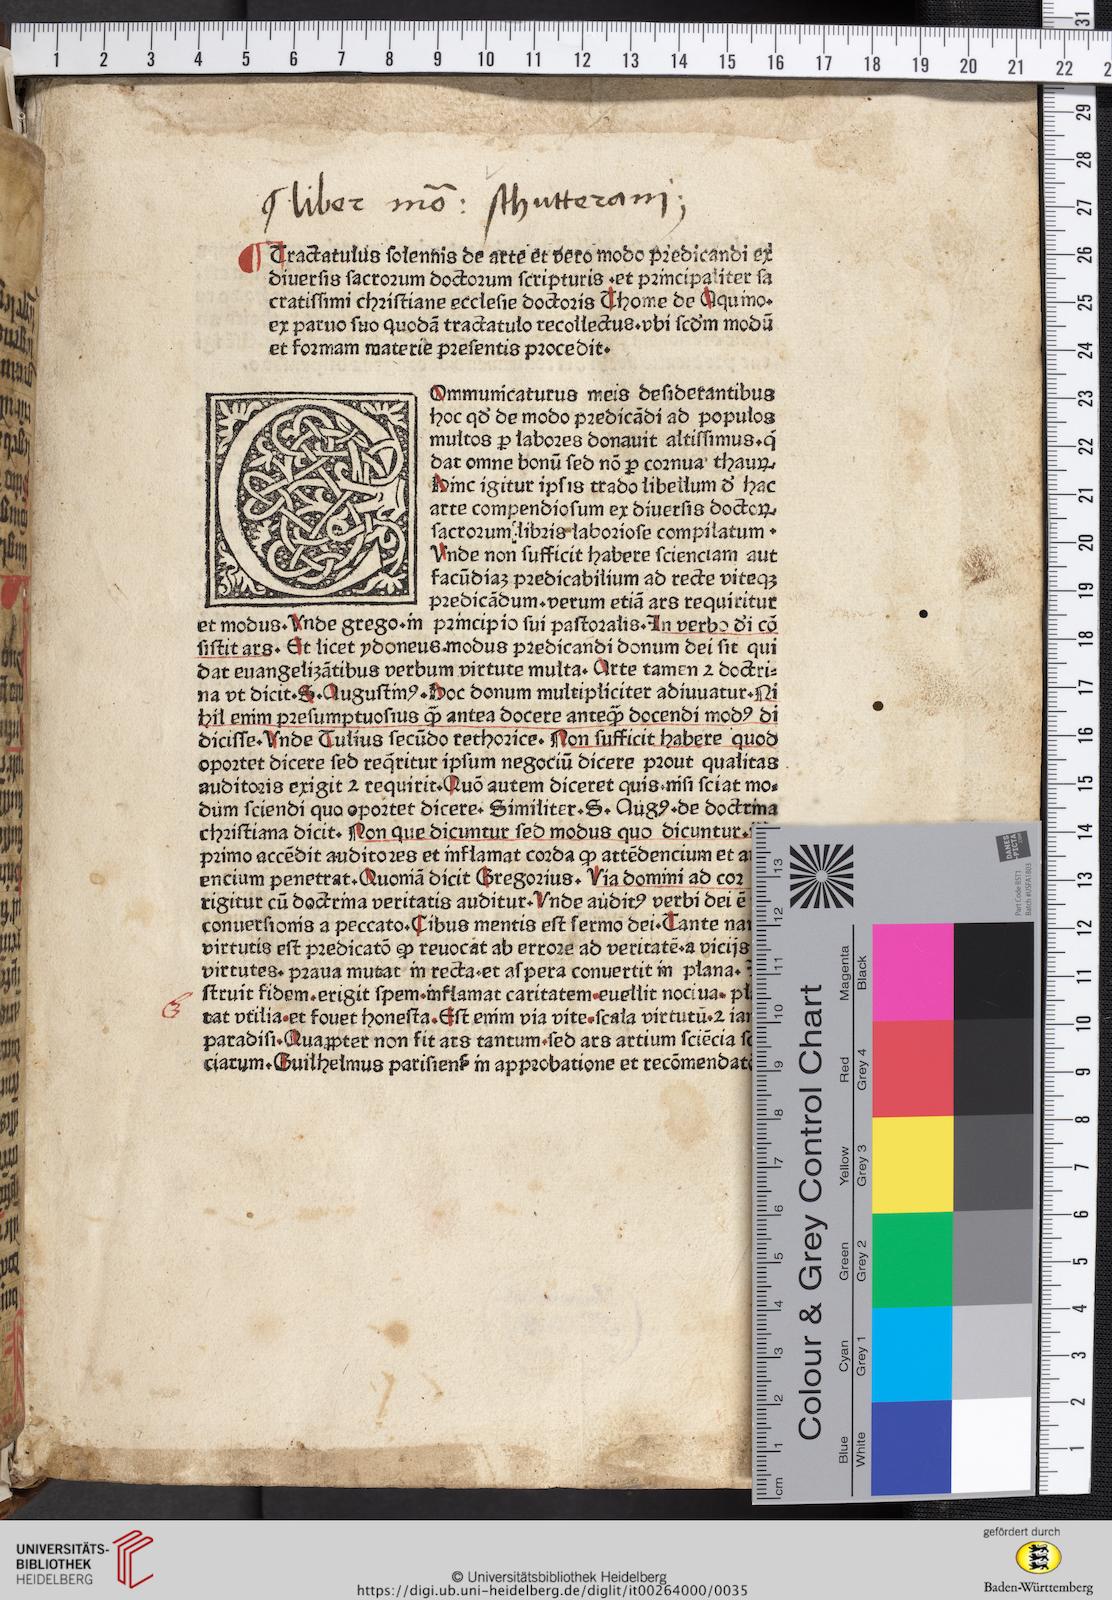 ¶ liber mo͞o : Schutterani ;
Tractatulus solennis de arte et vero modo predicandi ex
diuersis sacrorum doctorum scripturis .et principaliter sa
cratissimi christiane ecclesie doctoris Thome de Aquino.
ex paruo suo quodā tractatulo recollectus.vbi scḋm modū
et formam materie presentis procedit.
COmmunicaturus meis desiderantibus
hoc qḋ de modo predicādi ad populos
multos ꝑ labores donauit altissimus.q̇
dat omne bonū sed nō ꝑ cornua thauꝝ
Hinc igitur ipsis trado libellum ḋ hac
arte compendiosum ex diuersis doctoꝝ
sacrorum libris laboriose compilatum .
Vnde non sufficit habere scienciam aut
facūdiaꝫ predicabilium ad recte viteqꝫ
predicādum.verum etiā ars requiritur
et modus.Vnde grego.in principio sui pastoralis.In verbo ḋi cō
sistit ars. Et licet ydoneus.modus predicandi donum dei sit qui
dat euangelizātibus verbum virtute multa. Arte tamen ⁊ doctri=
na vt dicit.S.Augustinꝰ.Hoc donum multipliciter adiuuatur.Ni
hil enim presumptuosius ꝙ̄ antea docere anteꝙ̄ docendi modꝰ di
dicisse.Vnde Tulius secūdo rethorice. Non sufficit habere quod
oportet dicere sed reqritur ipsum negociū dicere prout qualitas
auditoris exigit ⁊ requirit.Quō autem diceret quis.nisi sciat mo=
dum sciendi quo oportet dicere. Similiter.S. Augꝰ.de doctrina
christiana dicit. Non que dicuntur sed modus quo dicuntur.
primo accēdit auditores et inflamat corda ꝙ attēdencium et a
encium penetrat.Quoniā dicit Gregorius. Via domini ad cor
rigitur cū doctrina veritatis auditur.Vnde auditꝰ verbi dei ē
conuersionis a peccato.Cibus mentis est sermo dei.Tante na
virtutis est predicatō ꝙ reuocat ab errore ad veritatē.a vicijs
virtutes. praua mutat in recta.et aspera conuertit in plana.
struit fidem.erigit spem.inflamat caritatem.euellit nociua. pl
tat vtilia.et fouet honesta.Est enim via vite.scala virtutū.⁊ ia
paradisi.Quaꝓpter non fit ars tantum.sed ars artium sciēcia s
ciarum.Guilhelmus parisienẜ in approbatione et recōmendat
1 2 3 4 5 6 7 8 9 10 11 12 13 14 15 16 17 18 19 20 21 22 2
31
29
28
27
26
25
24
23
22
21
20
19
18
17
16
15
14
13
12
11
10
9
8
7
6
5
4
3
2
1
DANES
PICTA
.COM
Part Code: BST1
Batch #USFA1803
Colour & Grey Control Chart
Blue Cyan Green Yellow Red Magenta
White Grey 1 Grey 2 Grey 3 Grey 4 Black
cm 1 2 3 4 5 6 7 8 9 10 11 12 13
UNIVERSITÄTS-
BIBLIOTHEK
HEIDELBERG
© Universitätsbibliothek Heidelberg
https://digi.ub.uni-heidelberg.de/diglit/it00264000/0035
gefördert durch
Baden-Württemberg